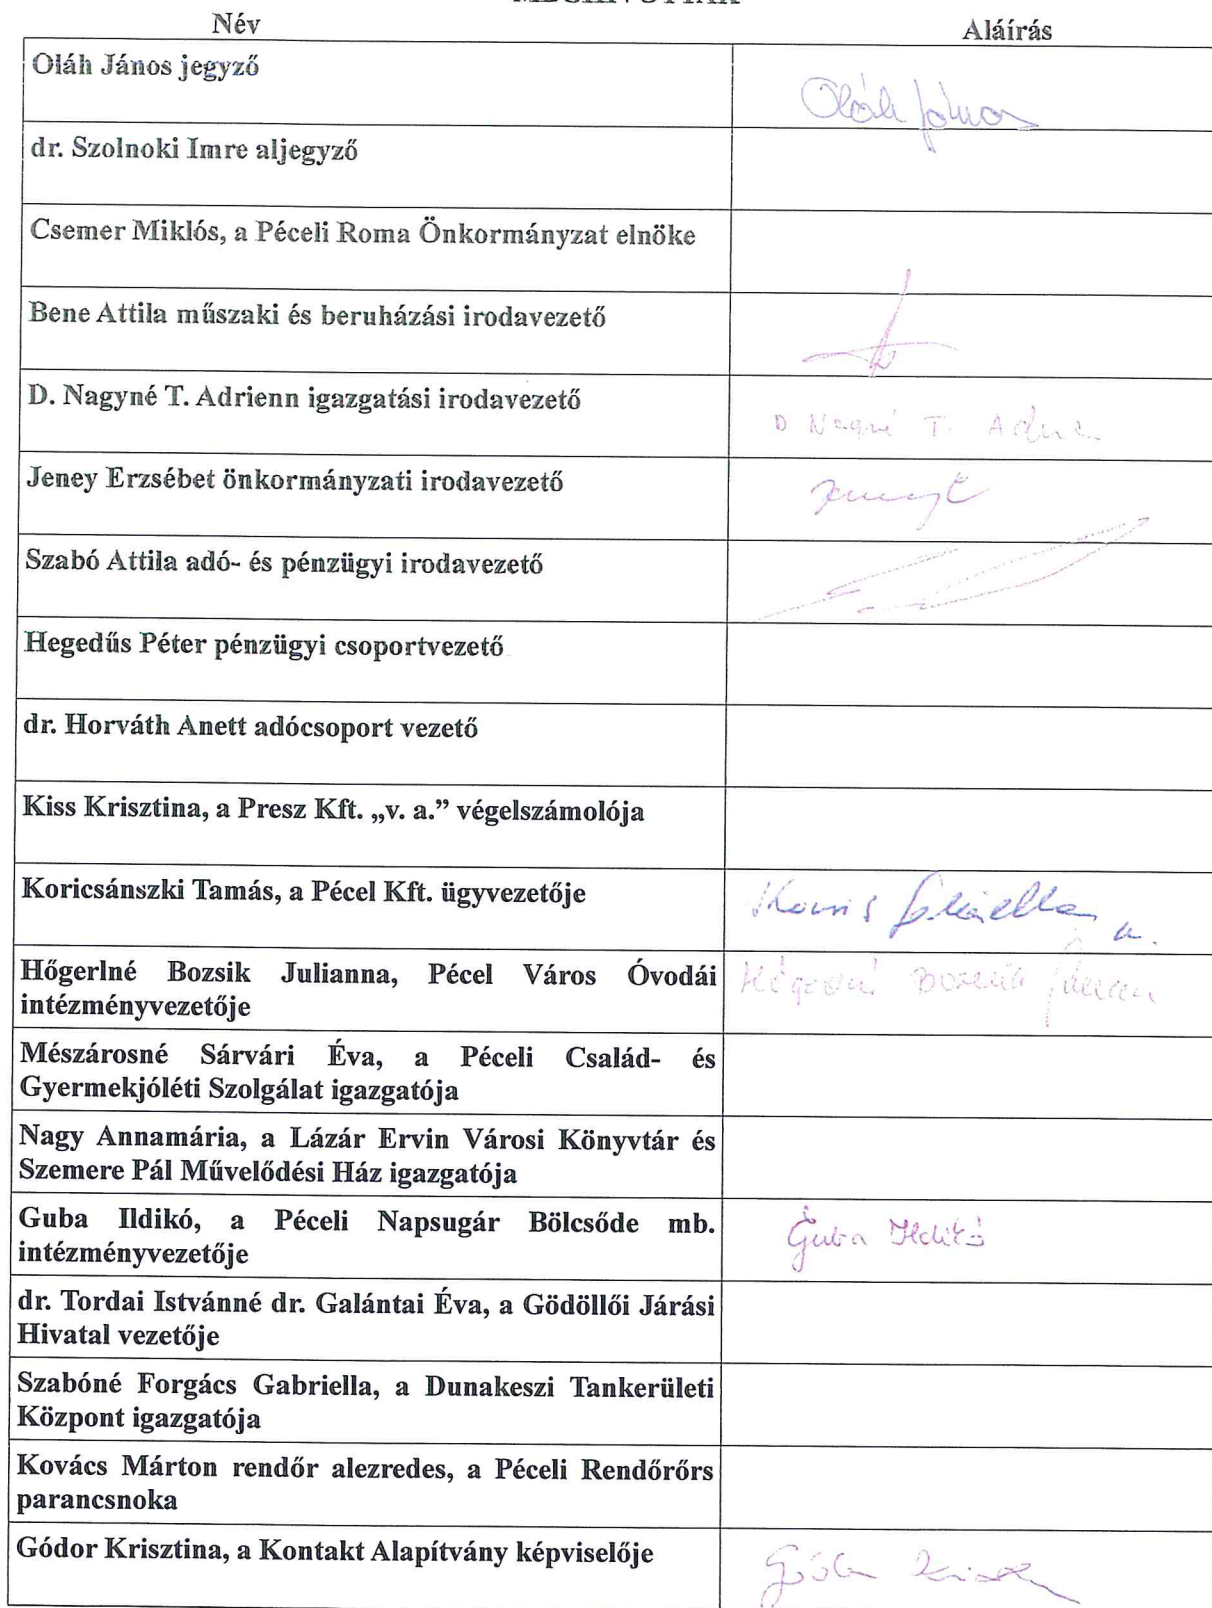 MEGHÍVOTTAK
Név Aláírás
Oláh János jegyző
Oláh János
dr. Szolnoki Imre aljegyző
Csemer Miklós, a Péceli Roma Önkormányzat elnöke
Bene Attila műszaki és beruházási irodavezető
D. Nagyné T. Adrienn igazgatási irodavezető
D Nagyné T.
Jeney Erzsébet önkormányzati irodavezető
Szabó Attila adó- és pénzügyi irodavezető
Hegedűs Péter pénzügyi csoportvezető
dr. Horváth Anett adócsoport vezető
Kiss Krisztina, a Presz Kft. „v. a.” végelszámolója
Koricsánszki Tamás, a Pécel Kft. ügyvezetője
Hőgerlné Bozsik Julianna, Pécel Város Óvodái
intézményvezetője
Mészárosné Sárvári Éva, a Péceli Család- és
Gyermekjóléti Szolgálat igazgatója
Nagy Annamária, a Lázár Ervin Városi Könyvtár és
Szemere Pál Művelődési Ház igazgatója
Guba Ildikó, a Péceli Napsugár Bölcsőde mb.
intézményvezetője
Guba Ildikó
dr. Tordai Istvánné dr. Galántai Éva, a Gödöllői Járási
Hivatal vezetője
Szabóné Forgács Gabriella, a Dunakeszi Tankerületi
Központ igazgatója
Kovács Márton rendőr alezredes, a Péceli Rendőrőrs
parancsnoka
Gódor Krisztina, a Kontakt Alapítvány képviselője